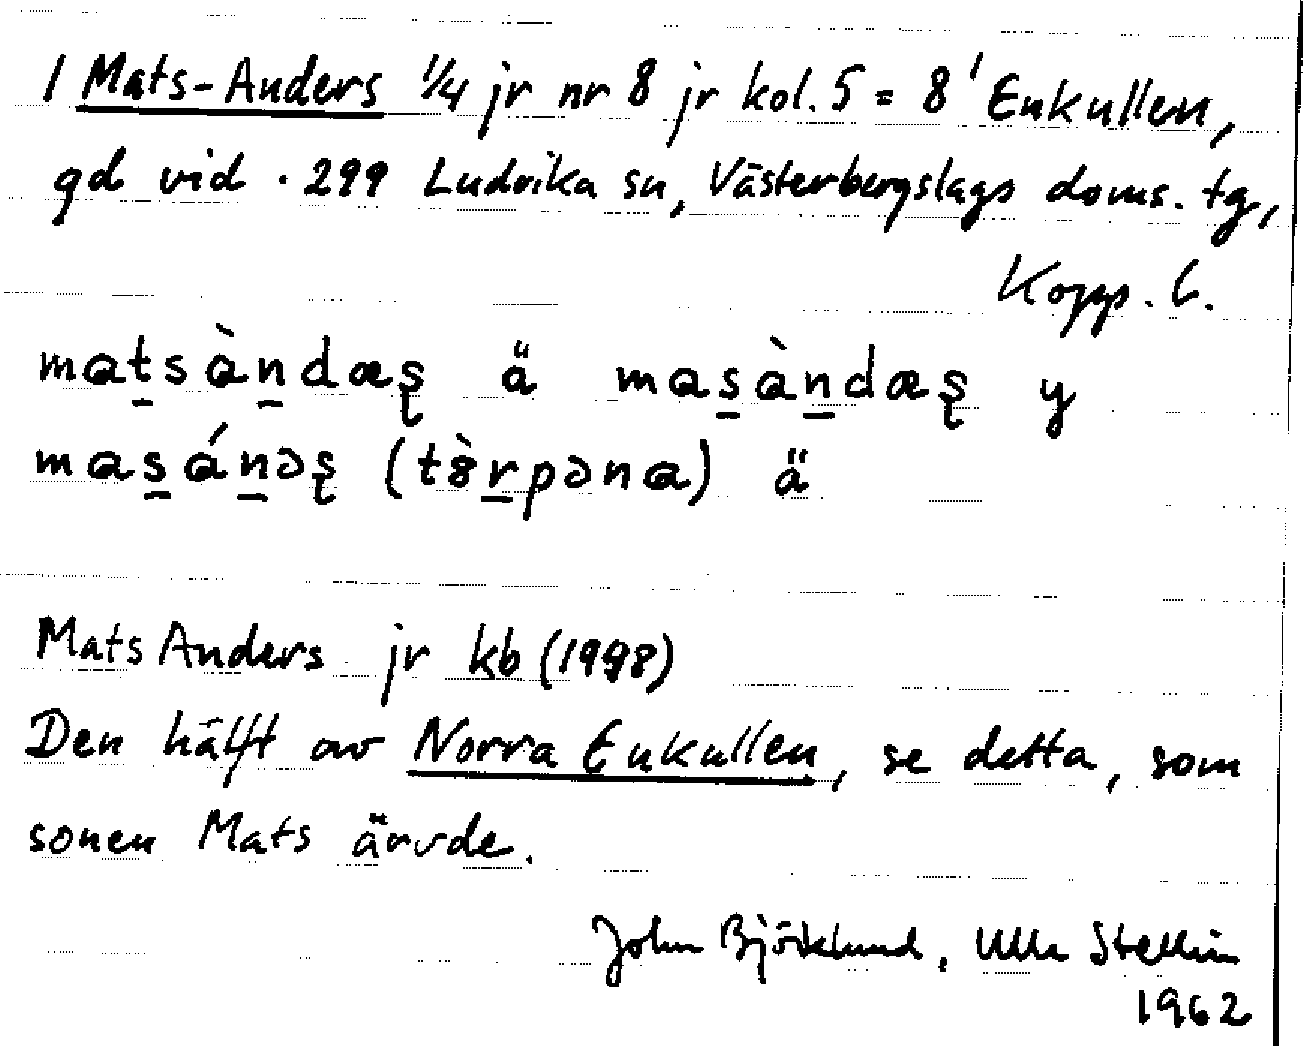 1 Mats-Anders 1/4 jr nr 8 jr kol. 5 = 8¹ Enkullen,
gd vid · 299 Ludvika sn, Västerbergslags doms. tg,
Kopp. l.
mat̠sàn̠dæş ä mas̠àn̠dæş y
mas̠án̠əş (tȍr̠pəna) ä
Mats Anders jr kb (1998)
Den hälft av Norra Enkullen, se detta, som
sonen Mats ärvde.
John Björklund, Ulla Stellin
1962